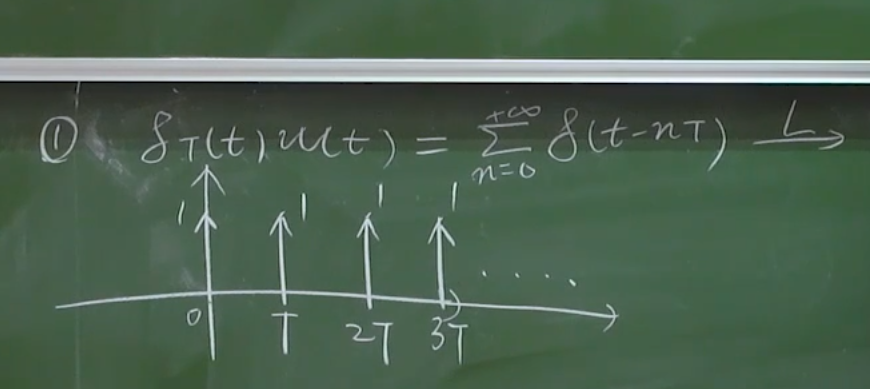 ① δT(t)u(t) = +∞ Σ n=0 δ(t-nT) L→
1 1 1 1 ....
0 T 2T 3T